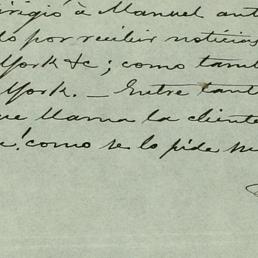 irigió á Manuel ant
do por recibir noticias
York &c; como tamb
York. — Entre tant
ue llama la cliente
e! como se lo pide su